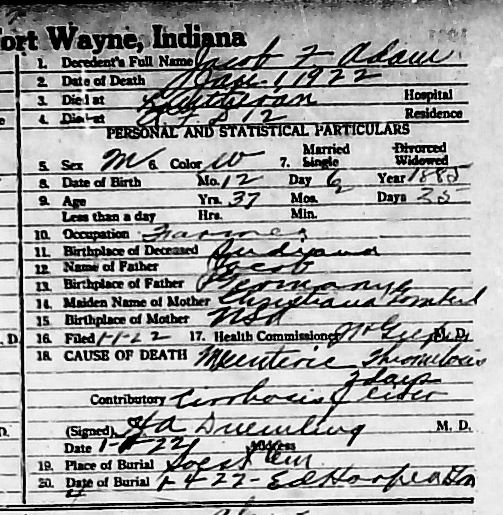 Fort Wayne, Indiana
1. Decedent's Full Name Jacob F Adam
2. Date of Death Jan 1, 1922
3. Died at Lutheran Hospital
4. Died at R F D 12 Residence
PERSONAL AND STATISTICAL PARTICULARS
5. Sex M 6. Color W 7. Married Single Divorced Widowed
8. Date of Birth Mo. 12 Day 6 Year 1885
9. Age Yrs. 37 Mos. Days 25
Less than a day Hrs. Min.
10. Occupation Farmer
11. Birthplace of Deceased Indiana
12. Name of Father Jacob
13. Birthplace of Father Germany
14. Maiden Name of Mother Christiana
15. Birthplace of Mother
16. Filed 1-1-22 17. Health Commissioner M. D.
18. CAUSE OF DEATH Mesenteric Thrombosis
3 days
Contributory Cirrhosis Liver
(Signed) H A Duemling M. D.
Date 1-1-22 Address
19. Place of Burial Soest Cem
20. Date of Burial 1-4-22